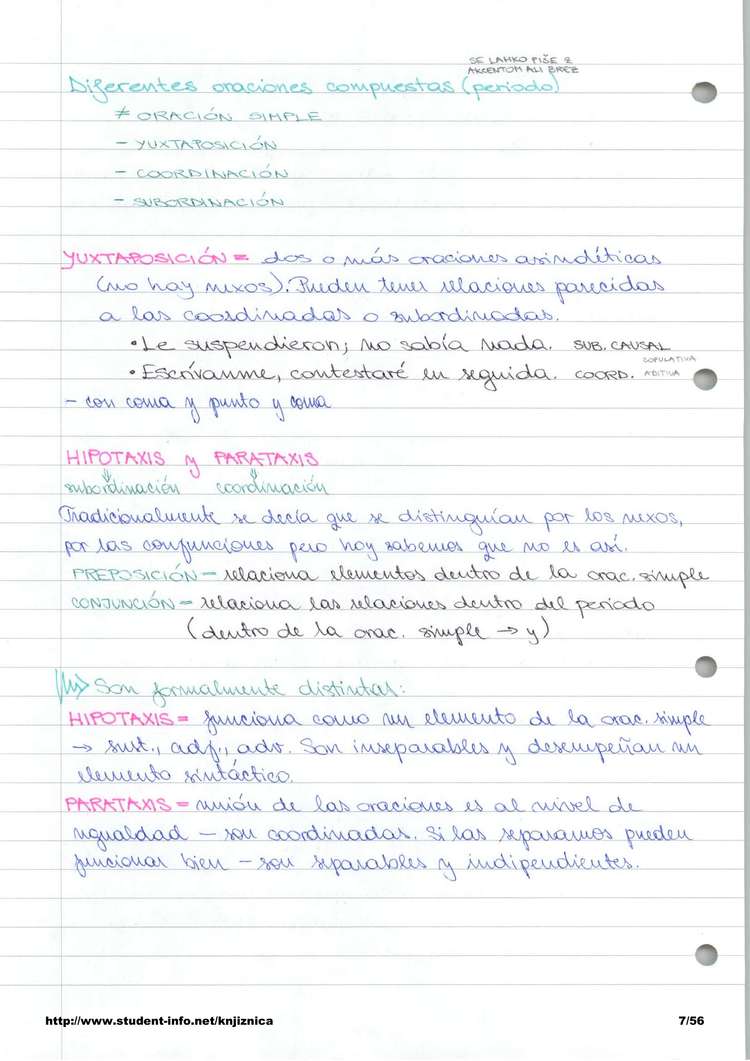 SE LAHKO PIŠE Z
AKCENTOM ALI BREZ
Diferentes oraciones compuestas (periodo)
≠ ORACIÓN SIMPLE
- YUXTAPOSICIÓN
- COORDINACIÓN
- SUBORDINACIÓN
YUXTAPOSICIÓN = dos o más oraciones asindéticas
(no hay nexos). Pueden tener relaciones parecidas
a las coordinadas o subordinadas.
• Le suspendieron; no sabía nada. SUB. CAUSAL
• Escrívanme, contestaré en seguida. COORD. COPULATIVA ADITIVA
- con coma y punto y coma
HIPOTAXIS y PARATAXIS
subordinación coordinación
Tradicionalmente se decía que se distinguían por los nexos,
por las conjunciones pero hoy sabemos que no es así.
PREPOSICIÓN - relaciona elementos dentro de la orac. simple
CONJUNCIÓN - relaciona las relaciones dentro del periodo
(dentro de la orac. simple → y)
Son formalmente distintas:
HIPOTAXIS = funciona como un elemento de la orac. simple
→ sust., adj., adv. Son inseparables y desempeñan un
elemento sintáctico.
PARATAXIS = unión de las oraciones es al nivel de
ugualdad - son coordinadas. Si las separamos pueden
funcionar bien - son separables y indipendientes.
http://www.student-info.net/knjiznica 7/56